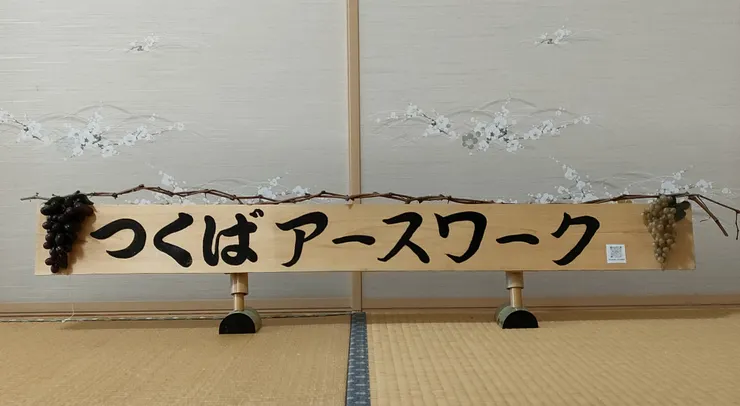 つくばアースワーク